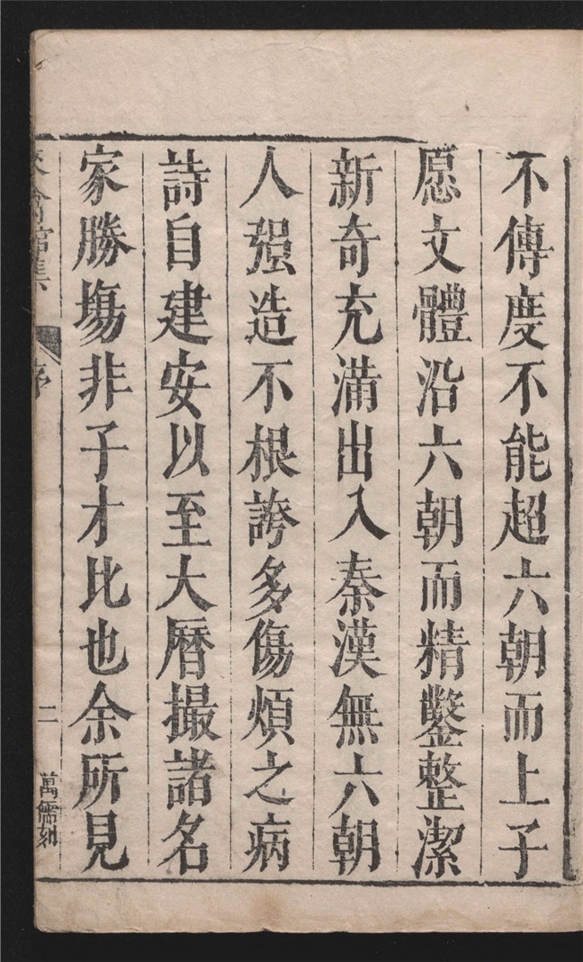 不傳度不能超六朝而上子
愿文體沿六朝而精鑿整潔
新奇充滿出入秦漢無六朝
人强造不根誇多傷煩之病
詩自建安以至大曆撮諸名
家勝塲非子才比也余所見
館集
序
二
萬儒刻